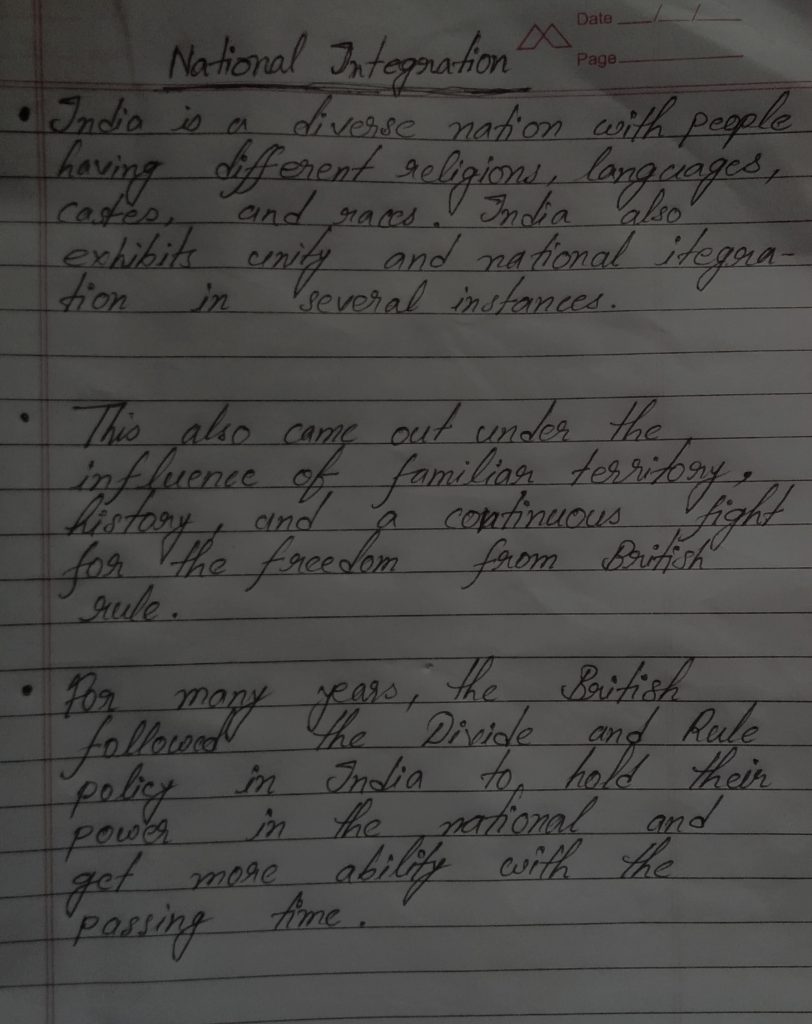 Date
Page
National Integration
• India is a diverse nation with people
having different religions, languages,
castes, and races. India also
exhibits unity and national itegra-
tion in several instances.
• This also came out under the
influence of familiar territory,
history, and a continuous fight
for the freedom from British
rule.
• For many years, the British
followed the Divide and Rule
policy in India to hold their
power in the national and
get more ability with the
passing time.